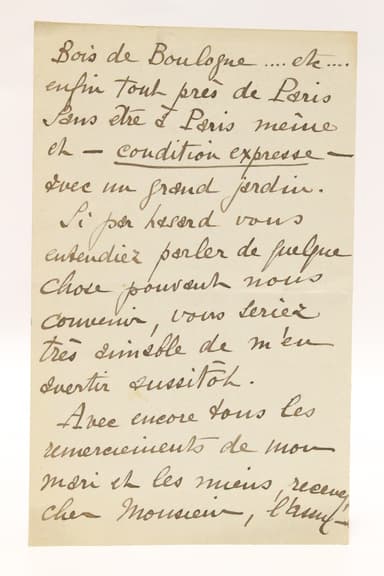 Bois de Boulogne .... etc ....
enfin tout près de Paris
sans être à Paris même
et — condition expresse —
avec un grand jardin.
Si par hasard vous
entendiez parler de quelque
chose pouvant nous
convenir, vous seriez
très aimable de m'en
avertir aussitôt.
Avec encore tous les
remerciements de mon
mari et les miens, recevez,
cher Monsieur,